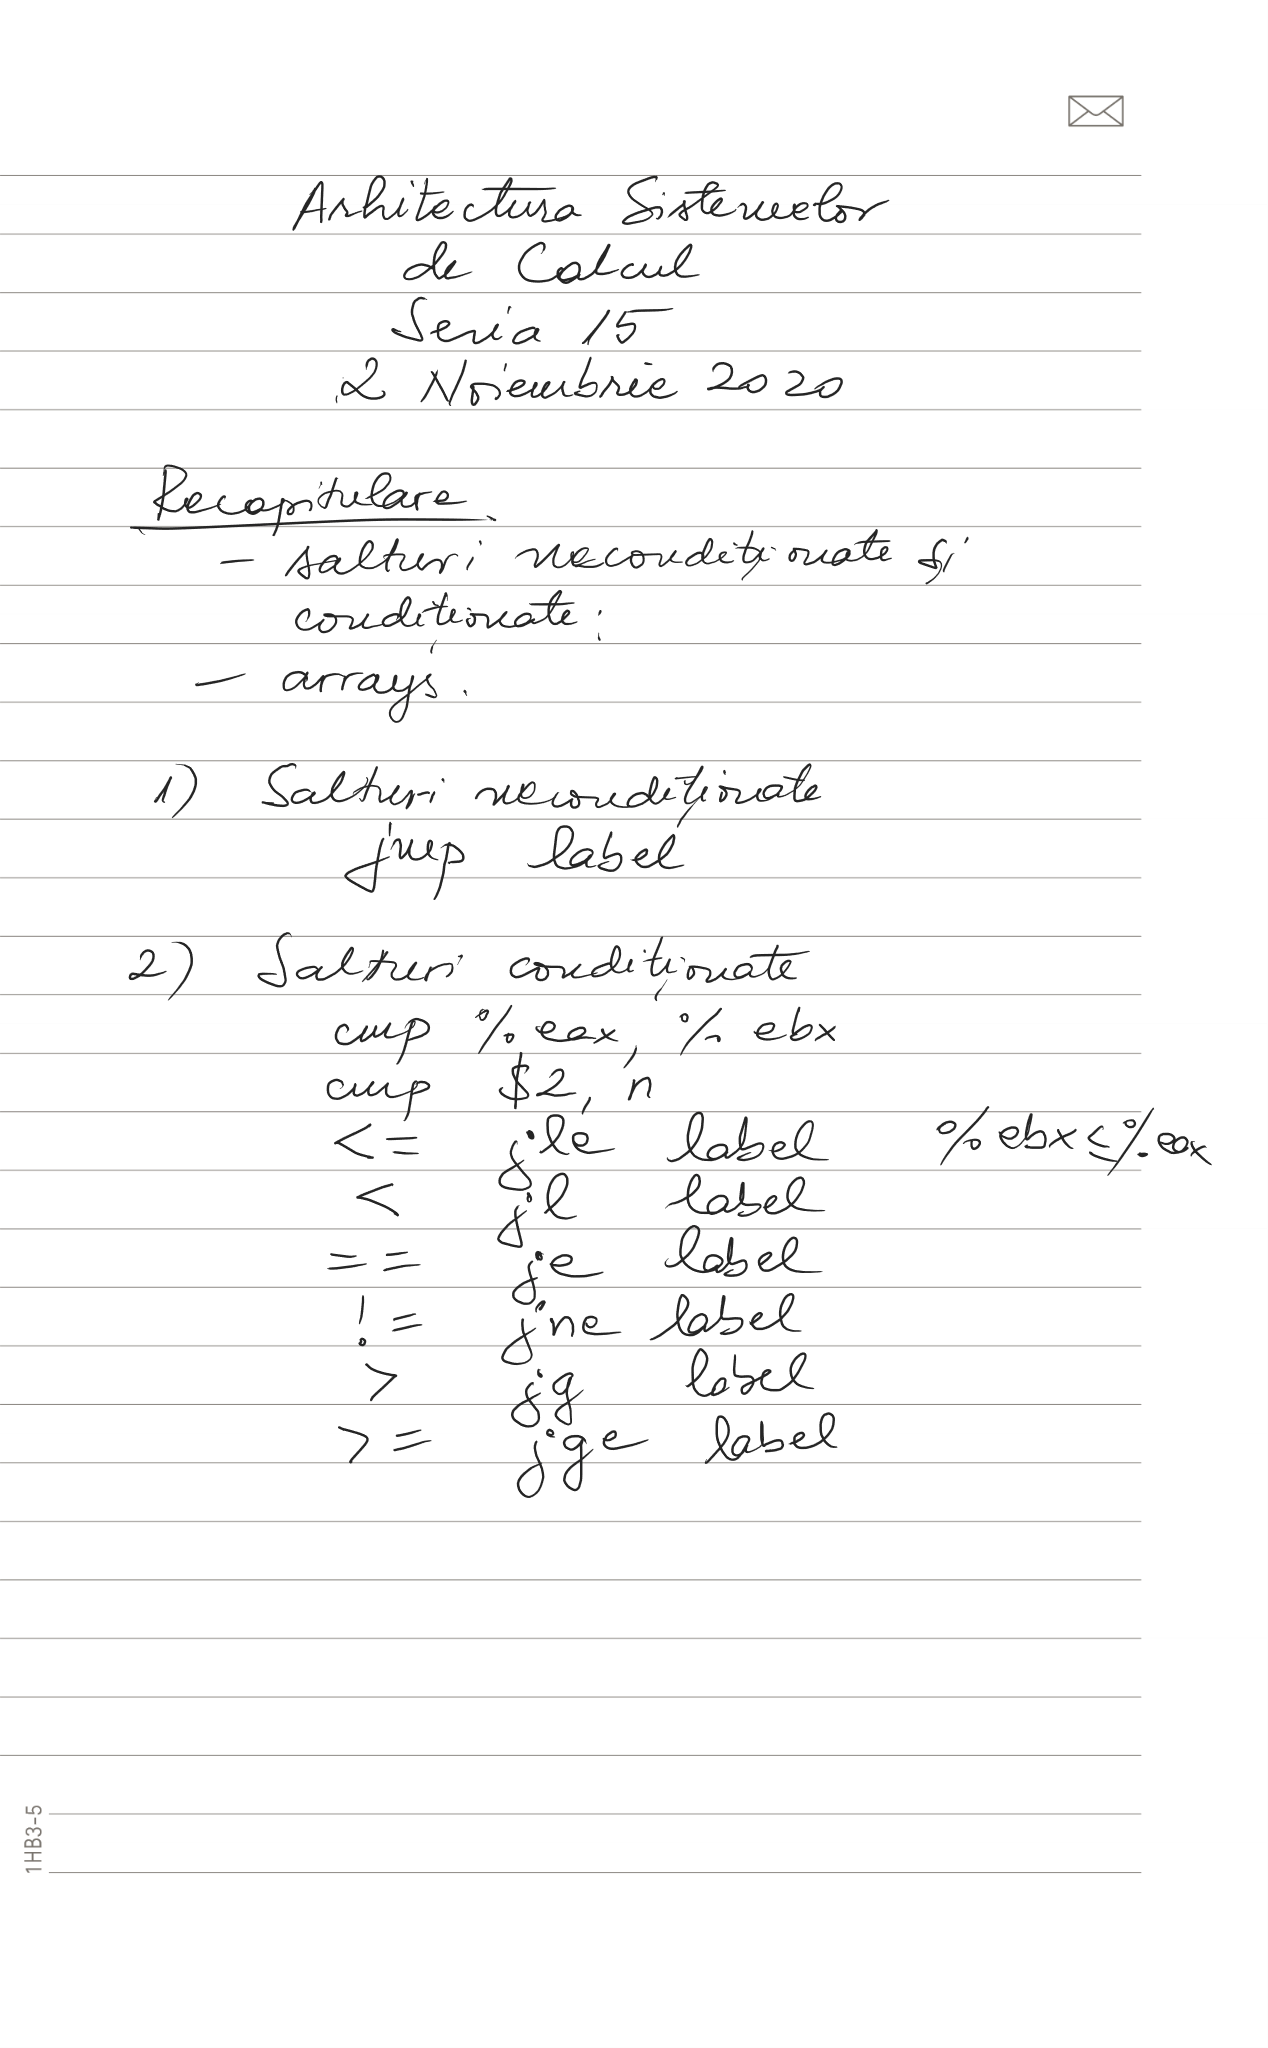 Arhitectura Sistemelor
de Calcul
Seria 15
2 Noiembrie 2020
Recapitulare
- salturi necondiționate și
condiționate;
- arrays.
1) Salturi necondiționate
jmp label
2) Salturi condiționate
cmp %eax, %ebx
cmp $2, n
<= jle label %ebx ≤ %eax
< jl label
== je label
!= jne label
> jg label
>= jge label
1HB3-5